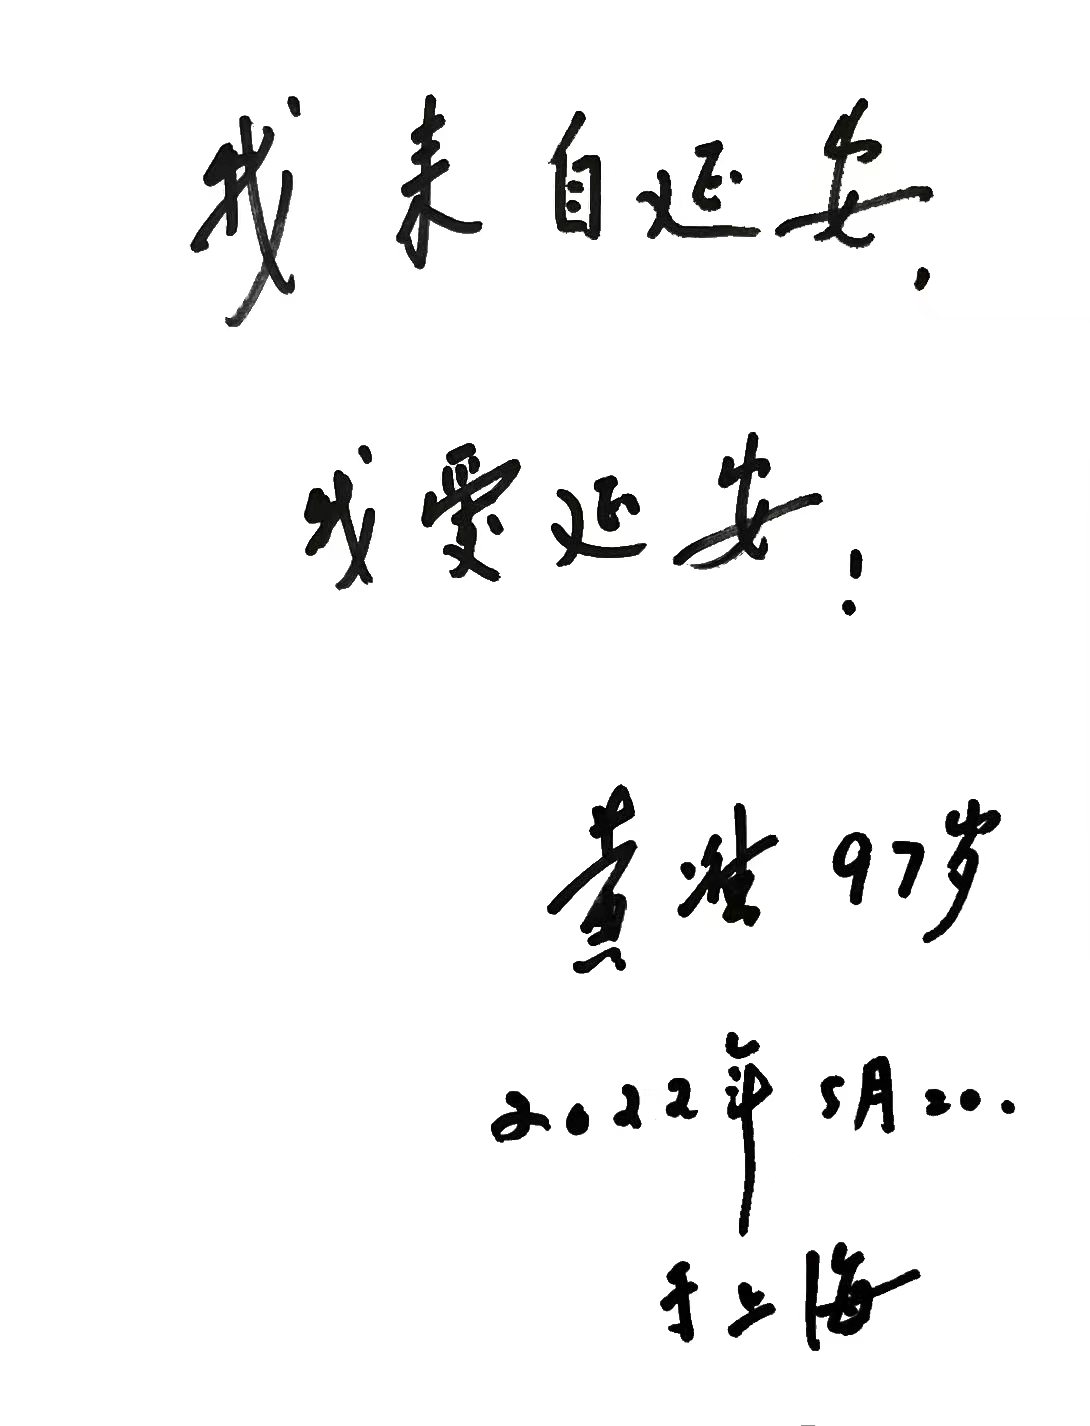 我来自延安.
我爱延安!
黄准 97岁
2022年5月20.
于上海